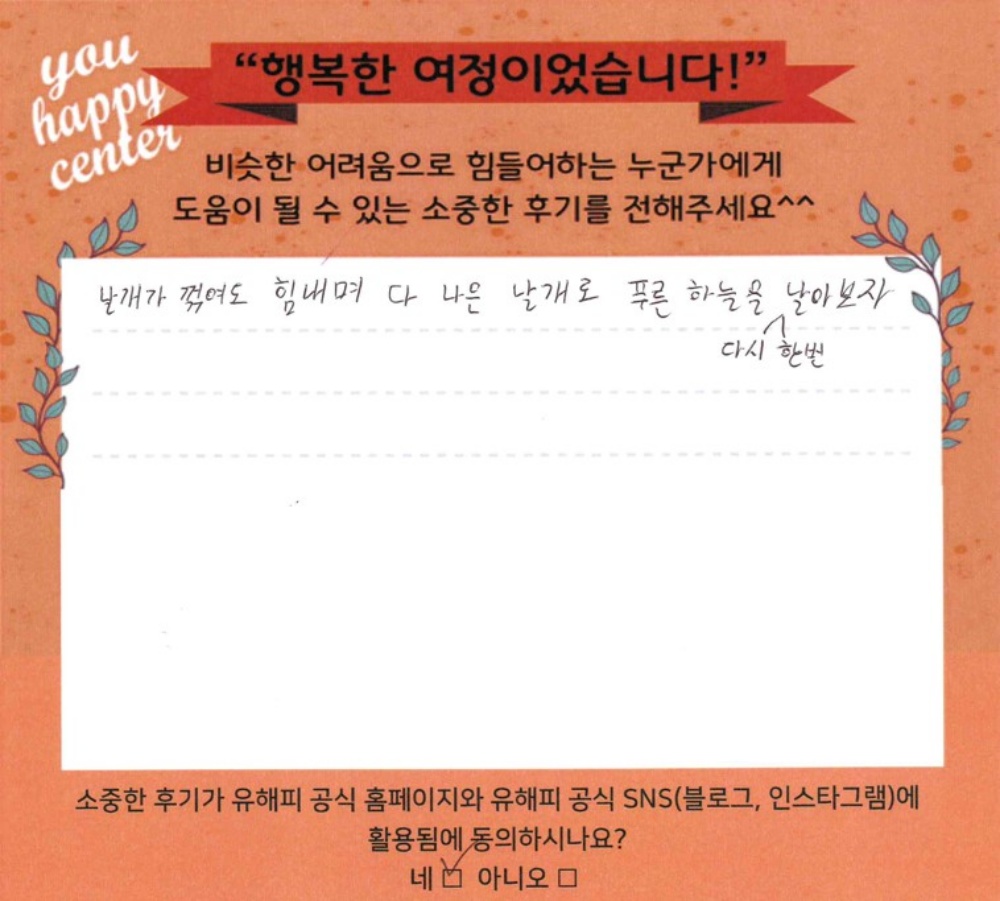 you
happy
center
“행복한 여정이었습니다!”
비슷한 어려움으로 힘들어하는 누군가에게
도움이 될 수 있는 소중한 후기를 전해주세요^^
날개가 꺾여도 힘내며 다 나은 날개로 푸른 하늘을 날아보자
다시 한번
소중한 후기가 유해피 공식 홈페이지와 유해피 공식 SNS(블로그, 인스타그램)에
활용됨에 동의하시나요?
네 ☑ 아니오 □